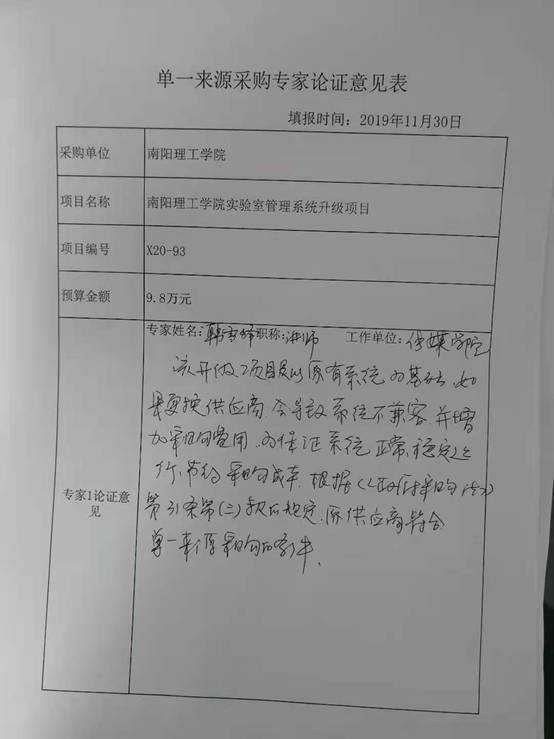 单一来源采购专家论证意见表
填报时间：2019年11月30日
采购单位 南阳理工学院
项目名称 南阳理工学院实验室管理系统升级项目
项目编号 X20-93
预算金额 9.8万元
专家姓名：韩 职称：讲师 工作单位：传媒学院
该升级项目是以原有系统为基础，如
果更换供应商会导致系统不兼容并增
加采购费用，为保证系统正常、稳定运
作，节约采购成本，根据《政府采购法》
专家1论证意见
第31条第(二)款的规定，原供应商符合
单一来源采购的条件。